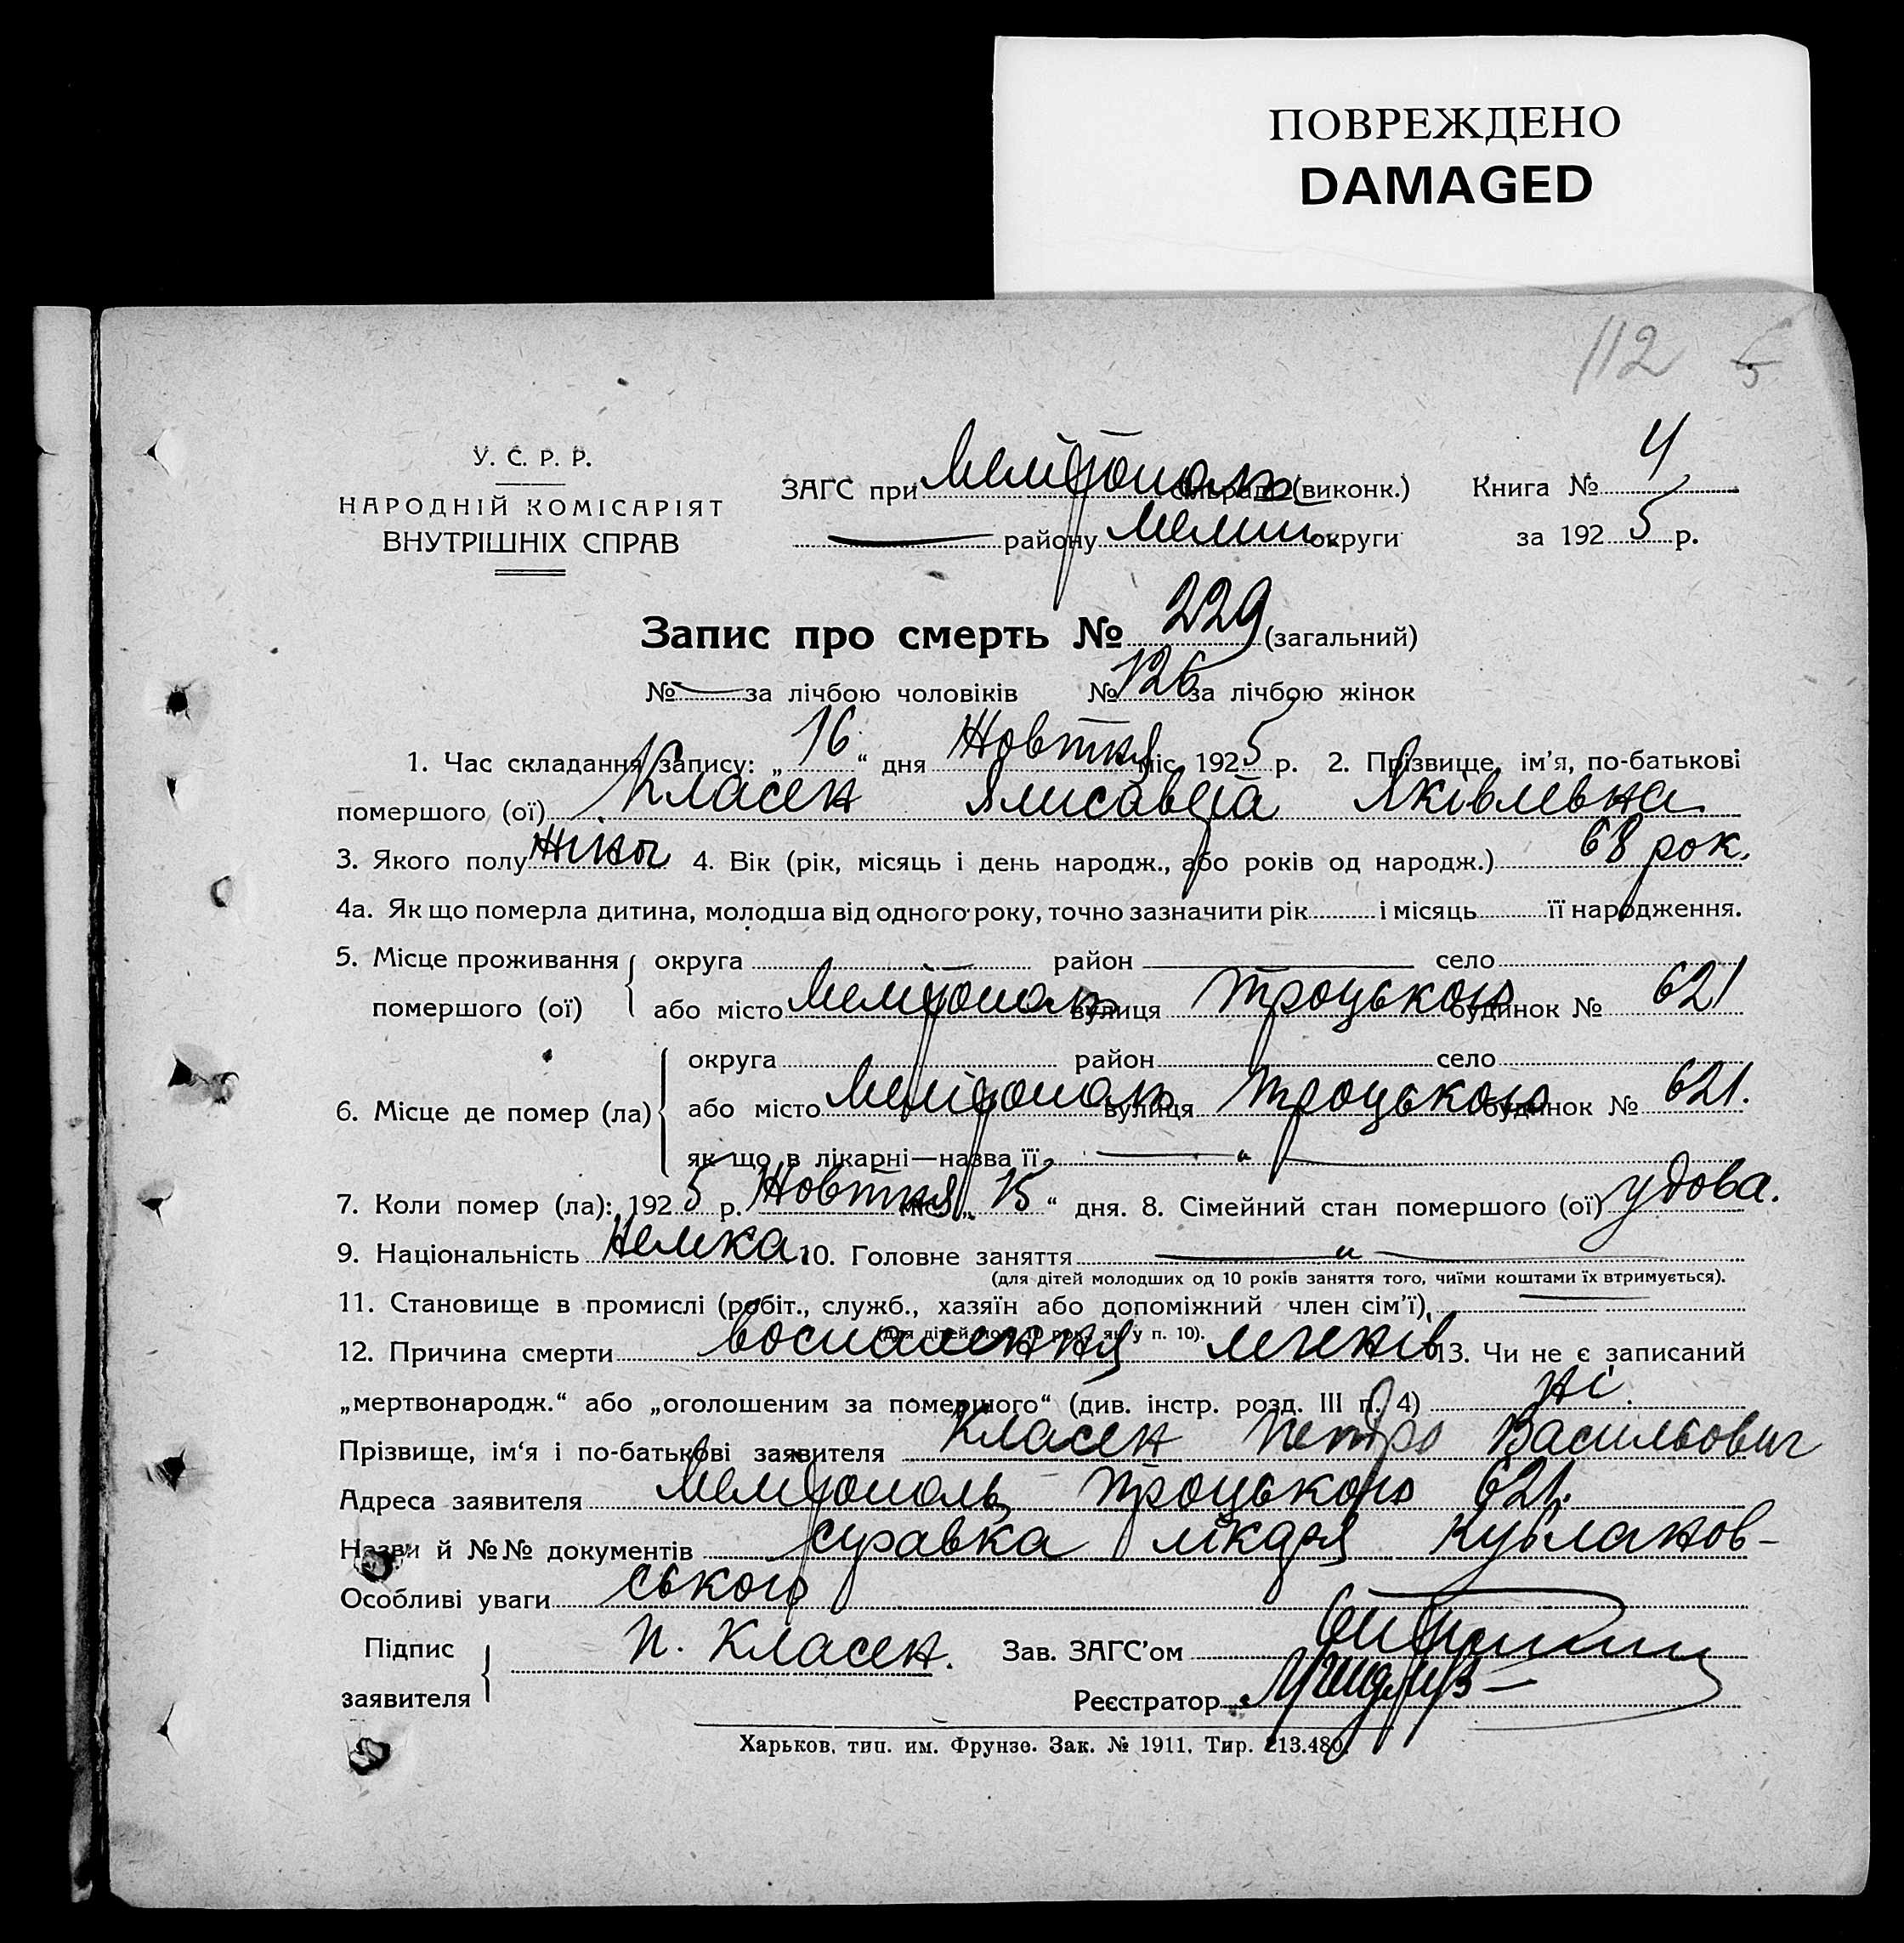 ПОВРЕЖДЕНО
DAMAGED
112 5
У. С. Р. Р.
НАРОДНІЙ КОМІСАРІЯТ
ВНУТРІШНІХ СПРАВ
ЗАГС при Мелітополь сільраді (виконк.) Книга № 4
району Меліт. округи за 1925 р.
Запис про смерть № 229 (загальний)
№ — за лічбою чоловіків № 126 за лічбою жінок
1. Час складання запису: „16“ дня Жовтня міс. 1925 р. 2. Прізвище, ім'я, по-батькові
помершого (ої) Класен Ялисавета Яківлевна
3. Якого полу жіноч 4. Вік (рік, місяць і день народж., або років од народж.) 68 рок.
4а. Як що померла дитина, молодша від одного року, точно зазначити рік і місяць її народження.
5. Місце проживання округа район — село
помершого (ої) або місто Мелітополь вулиця Троцького будинок № 621
округа район село
6. Місце де помер (ла) або місто Мелітополь вулиця Троцького будинок № 621.
як що в лікарні—назва її — „ —
7. Коли помер (ла): 1925 р. Жовтня міс. „15“ дня. 8. Сімейний стан помершого (ої) удова.
9. Національність Немка 10. Головне заняття — „ —
(для дітей молодших од 10 років заняття того, чиїми коштами їх втримується).
11. Становище в промислі (робіт., служб., хазяїн або допоміжний член сім'ї) —
(для дітей мол. 10 рок., як у п. 10).
12. Причина смерти воспалення легенів 13. Чи не є записаний
„мертвонародж.“ або „оголошеним за помершого“ (див. інстр. розд. III п. 4) ні.
Прізвище, ім'я і по-батькові заявителя Класен Петро Васильович
Адреса заявителя Мелітополь Троцького 621.
Назви й №№ документів справка лікаря Кублановсь-
Особливі уваги ського
Підпис
заявителя П. Класен. Зав. ЗАГС'ом
Реєстратор
Харьков, тип. им. Фрунзе. Зак. № 1911. Тир. 213.480.